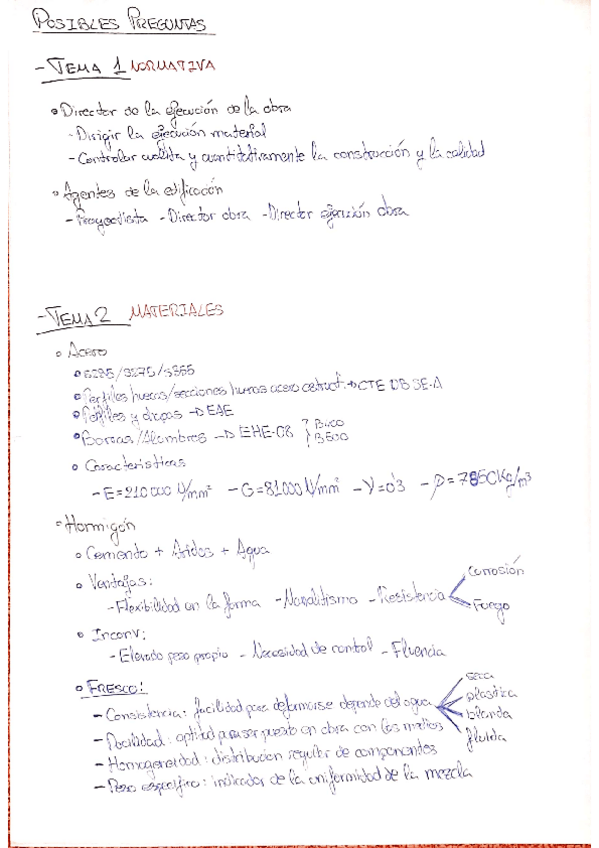 POSIBLES PREGUNTAS
- TEMA 1 NORMATIVA
• Director de la ejecución de la obra
- Dirigir la ejecución material
- Controlar cualita y cuantitativamente la construcción y la calidad
• Agentes de la edificación
- Proyectista - Director obra - Director ejecución obra
- TEMA 2 MATERIALES
• Acero
• S235/S275/S355
• Perfiles huecos/secciones huecas acero estruct. → CTE DB SE-A
• Perfiles y chapas → EAE
• Barras/Alambres → EHE-08 } B400 B500
• Características
- E=210000 N/mm² - G=81000 N/mm² - V=0'3 - ρ=7850Kg/m³
• Hormigón
• Cemento + Áridos + Agua
• Ventajas:
- Flexibilidad en la forma - Monolitismo - Resistencia < Corrosión Fuego
• Inconv:
- Elevado peso propio - Necesidad de control - Fluencia
• FRESCO:
- Consistencia: facilidad para deformarse depende del agua < seca plastica blanda fluida
- Docilidad: aptitud para ser puesto en obra con los medios
- Homogeneidad: distribucion regular de componentes
- Peso especifico: indicador de la uniformidad de la mezcla